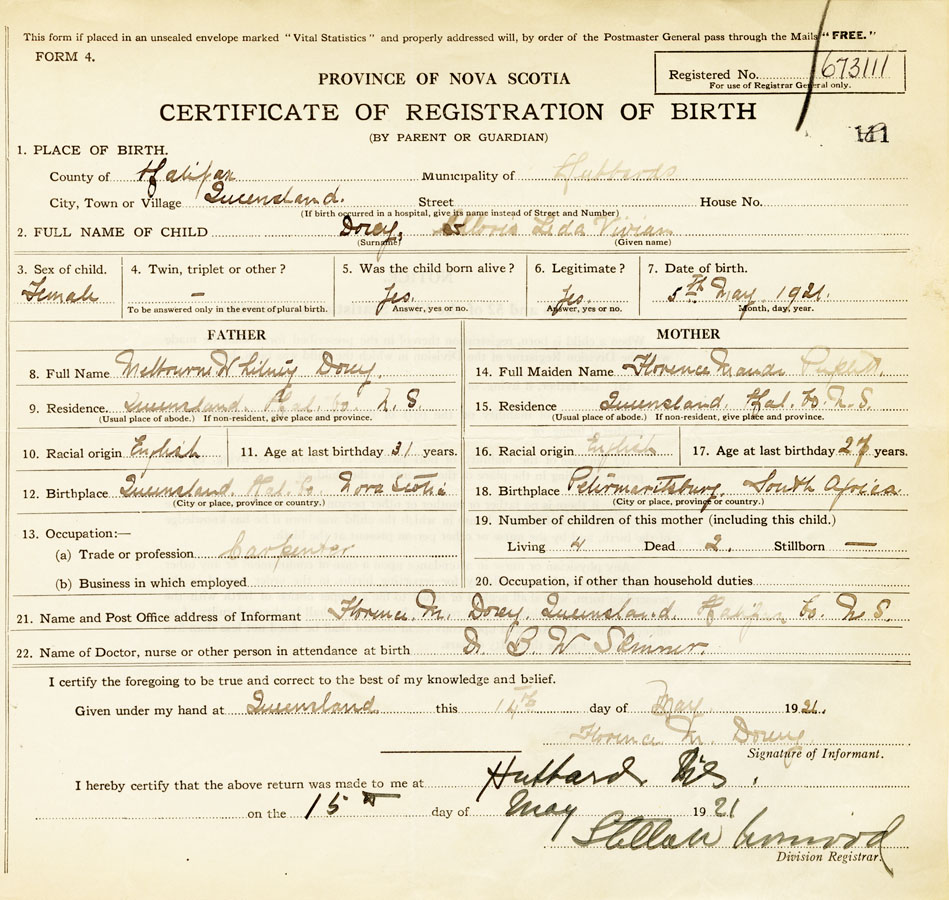 This form if placed in an unsealed envelope marked "Vital Statistics" and properly addressed will, by order of the Postmaster General pass through the Mails "FREE."
FORM 4.
PROVINCE OF NOVA SCOTIA
Registered No. 673111
For use of Registrar General only.
CERTIFICATE OF REGISTRATION OF BIRTH
(BY PARENT OR GUARDIAN)
111
1. PLACE OF BIRTH.
County of Halifax Municipality of Hubbards
City, Town or Village Queensland. Street House No.
(If birth occurred in a hospital, give its name instead of Street and Number)
2. FULL NAME OF CHILD Dorey, Leda Vivian
(Surname) (Given name)
3. Sex of child. 4. Twin, triplet or other? 5. Was the child born alive? 6. Legitimate? 7. Date of birth.
Female — Yes. Yes. 5th May, 1921.
To be answered only in the event of plural birth. Answer, yes or no. Answer, yes or no. Month, day, year.
FATHER MOTHER
8. Full Name Melbourne Dorey. 14. Full Maiden Name Florence Maude
9. Residence. Queensland. Hal. Co. N. S. 15. Residence Queensland. Hal. Co. N. S.
(Usual place of abode.) If non-resident, give place and province. (Usual place of abode.) If non-resident, give place and province.
10. Racial origin English 11. Age at last birthday 31 years. 16. Racial origin English 17. Age at last birthday 27 years.
12. Birthplace Queensland. Hal. Co Nova Scotia 18. Birthplace Petermaritsburg. South Africa
(City or place, province or country.) (City or place, province or country.)
13. Occupation:— 19. Number of children of this mother (including this child.)
(a) Trade or profession Carpenter Living 4 Dead 2. Stillborn —
(b) Business in which employed 20. Occupation, if other than household duties
21. Name and Post Office address of Informant Florence. M. Dorey. Queensland. Halifax Co. N. S.
22. Name of Doctor, nurse or other person in attendance at birth Dr. B. W Skinner.
I certify the foregoing to be true and correct to the best of my knowledge and belief.
Given under my hand at Queensland this 14th day of May 1921.
Florence M. Dorey
Signature of Informant.
I hereby certify that the above return was made to me at Hubbards N.S.
on the 15th day of May 1921
Stella
Division Registrar.